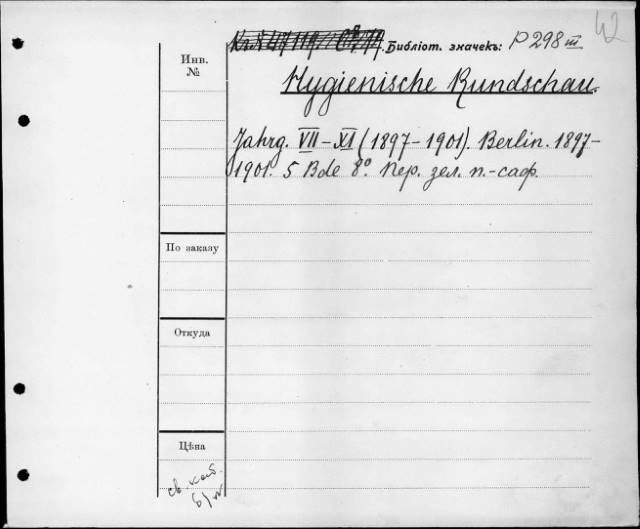 42
Библіот. значекъ: P 298 III
Инв.
№
Hygienische Rundschau.
Jahrg. VII-XI (1897-1901). Berlin. 1897-
1901. 5 Bde 8° Пер. зел. п.-саф.
По заказу
Откуда
Цѣна
св. каб.